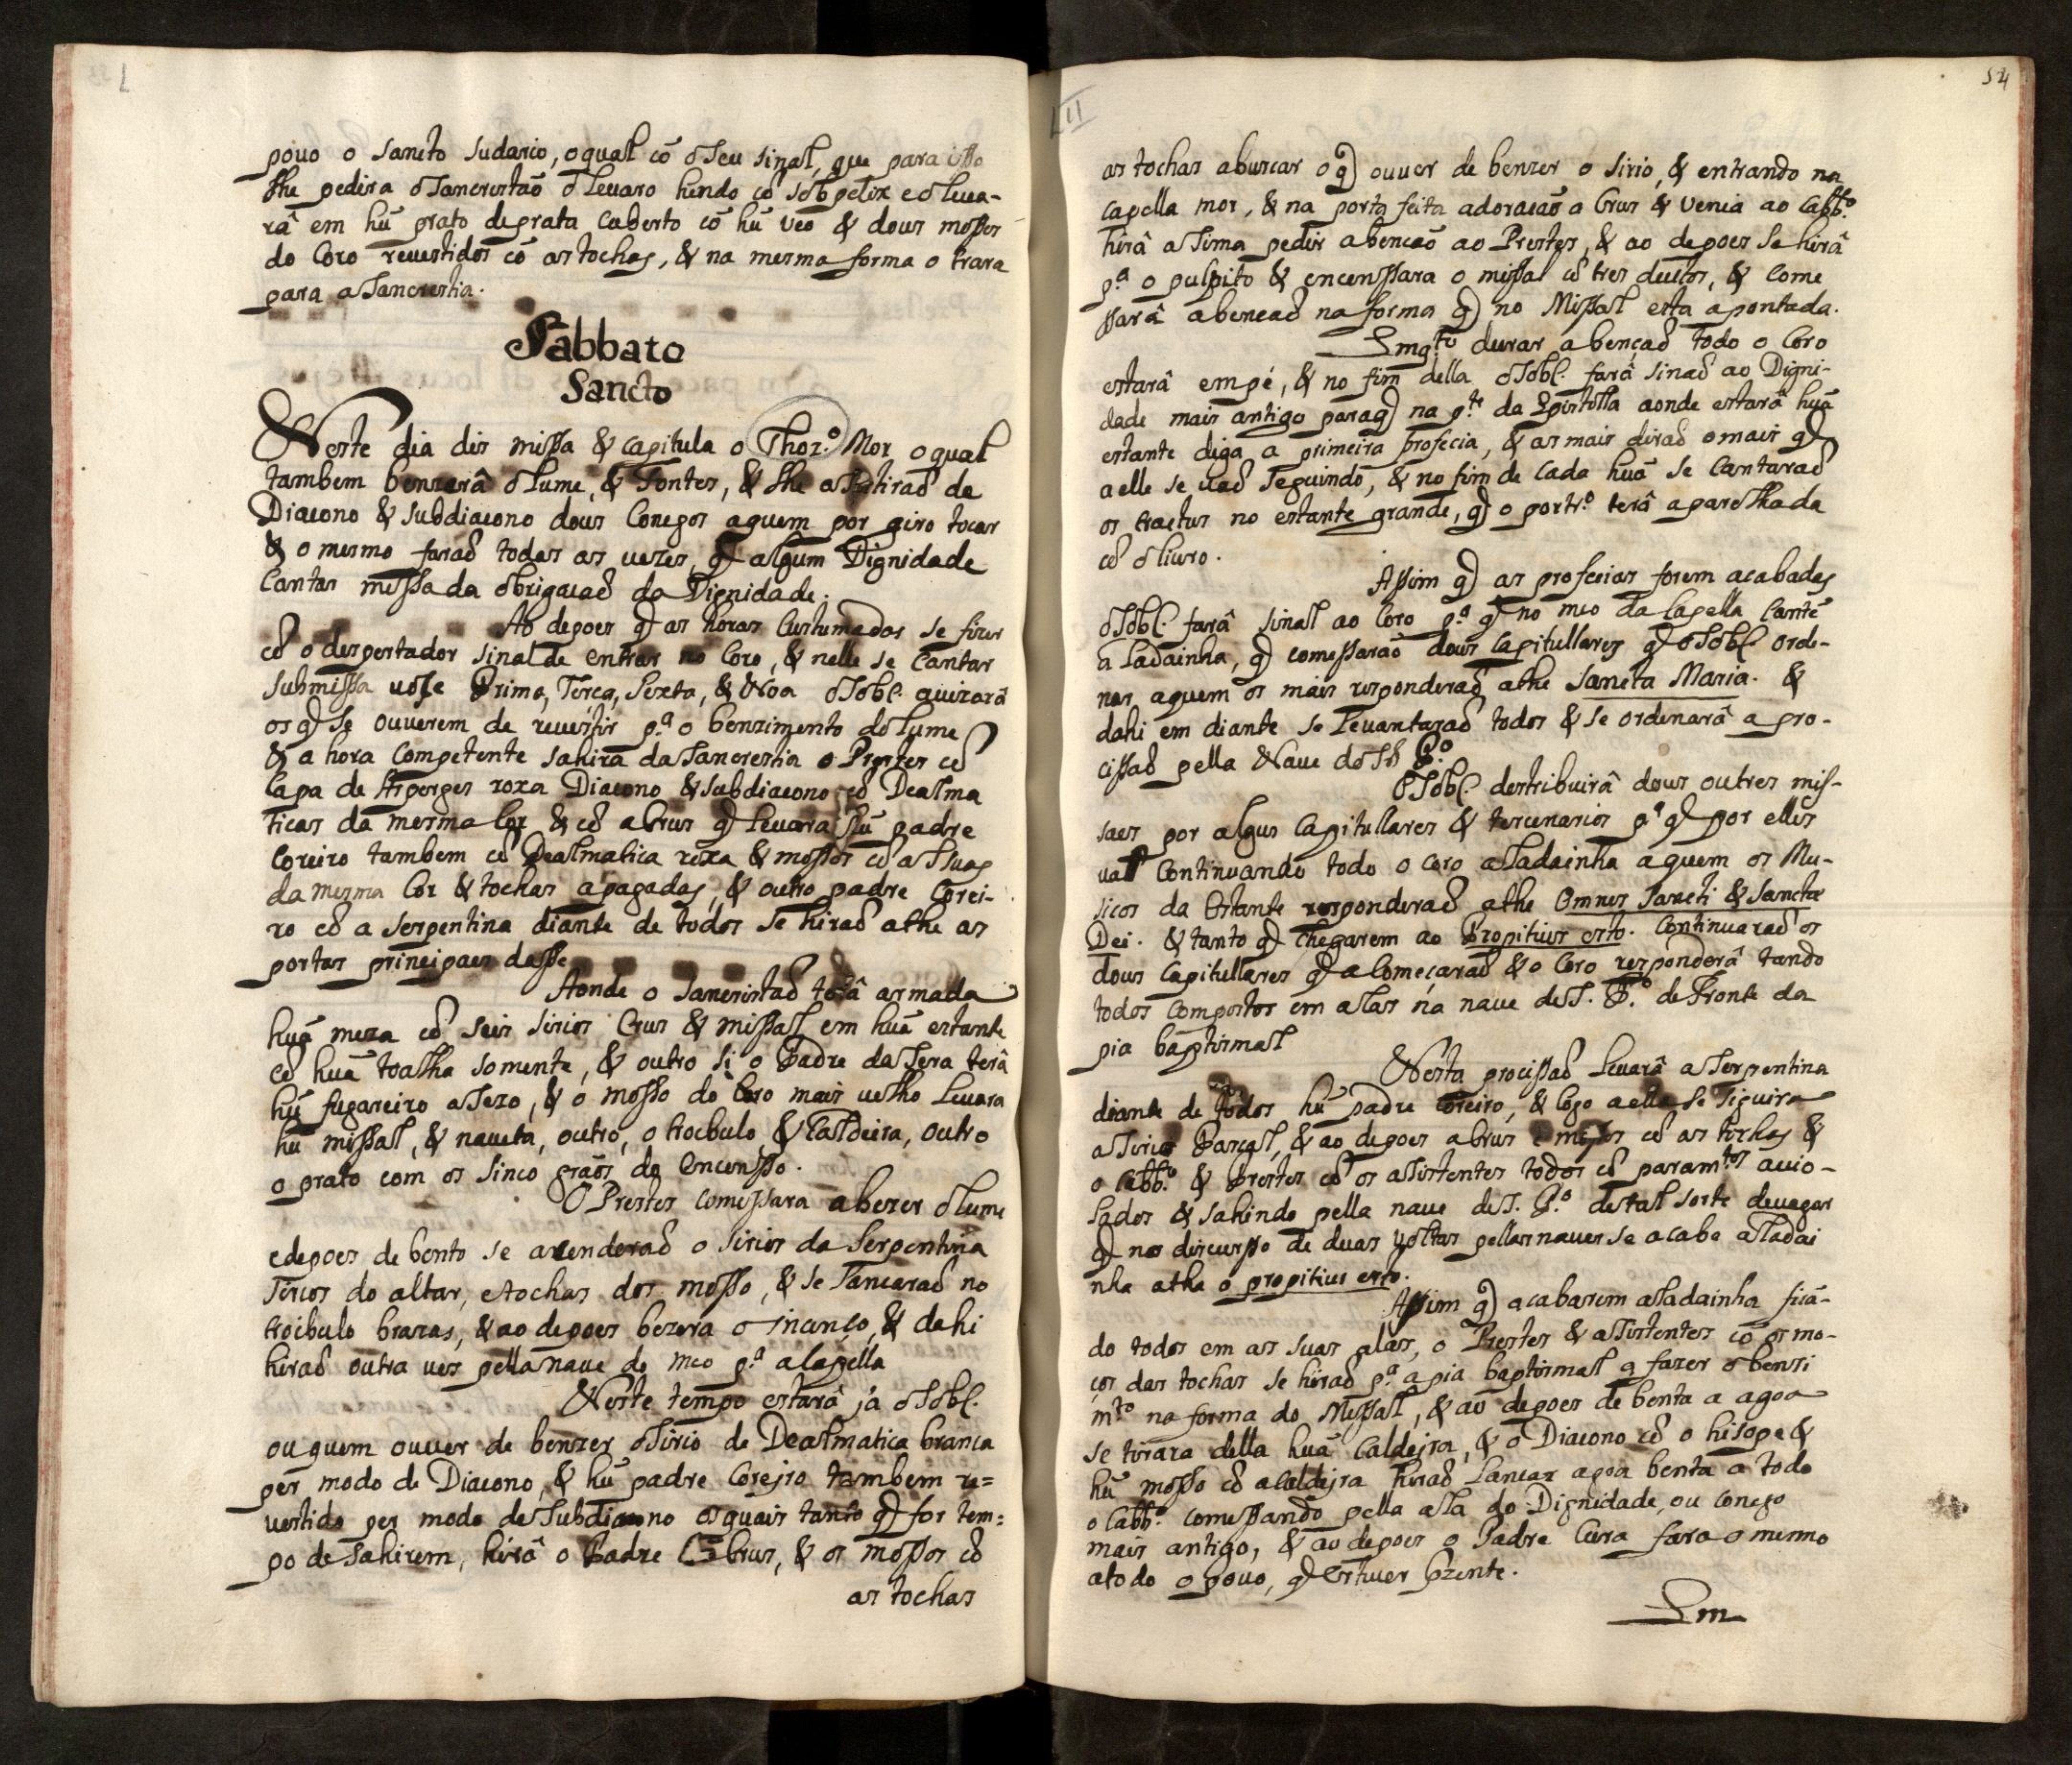 povo o sancto sudario, o qual cõ o seu sinal, que para isso
lhe pedira o sancrestaõ o levaro hindo cõ sobpelix e o leva-
râ em hũ prato de prata cuberto cõ hũ veo & dous mossos
do Coro revestidos cõ as tochas, & na mesma forma o trara
para a sancrestia.
Sabbato
Sancto
Neste dia dis missa & capitula o Thoz.º Mor o qual
tambem benzerâ o lume, & Fontes, & lhe assistiraõ de
Diacono & subdiacono dous Conegos aquem por giro tocar
& o mesmo faraõ todas as vezes, q̃ algum Dignidade
Cantar missa da obrigacaõ da Dignidade.
Ao depoes q̃ as horas Custumadas se fizer
cõ o despertador sinal de entrar no Coro, & nelle se Cantar
submissa vose Prima, Terça, Sexta, & Noa o Sobc. avizarâ
os q̃ se ouverem de revestir p.ª o benzimento do lume
& a hora Competente sahirâ da sancrestia o Prestes cõ
Capa de Asperges roxa Diacono & subdiacono cõ Dealma
ticas da mesma Cor & cõ a Crus q̃ levara hũ padre
Coreiro tambem cõ Dealmatica roxa & mossos cõ as suas
da mesma Cor & tochas apagadas, & outro padre Corei-
ro cõ a serpentina diante de todos se hiraõ athe as
portas principaes da See
Aonde o sancristaõ terâ armada
huã meza cõ seis sirios Crus & missal em huã estante
cõ huã toalha somente, & outro si o Padre da sera terâ
hũ fugareiro asezo, & o mosso do Coro mais velho levara
hũ missal, & naveta, outro, o trocbulo & Caldeira, outro
o prato com os sinco graõs de encensso.
O Prestes comessara a bezer o lume
e depoes de bento se acenderaõ o sirios da serpentina
sirios do altar, e tochas dos mosso, & se lancaraõ no
troibulo brazas, & ao depoes bezera o incenço, & dahi
hiraõ outra ves pella nave do meo p.ª a Capella
Neste tempo estarâ já o Sobc.
ou quem ouver de benzer o sirio de Dealmatica branca
per modo de Diacono, & hũ padre Corejro tambem re=
vestido per modo de subdiacono os quais tanto q̃ for tem=
po de sahirem, hirâ o Padre Cõ Crus, & os mossos cõ
as tochas
54
as tochas a buscar o q̃ ouver de benzer o sirio, & entrando na
Capella mor, & na porta feita adoracaõ a Crus & venia ao Cabb.º
hirâ asima pedir a bencaõ ao Prestes, & ao depoes se hirâ
p.ª o pulpito & encenssara o missal cõ tres ductos, & come
ssarâ a bencaõ na forma q̃ no Missal esta apontada.
Emq.to durar a bençaõ todo o Coro
estarâ em pé, & no fim della o Sobc. farâ sinaõ ao Digni-
dade mais antigo para q̃ na p.te da Epistolla aonde estarâ huã
estante diga a primeira profecia, & as mais diraõ o mais q̃
a elle se vaõ seguindo, & no fim de cada huã se Cantaraõ
os tractus no estante grande, q̃ o portr.º terâ aparolhada
cõ o livro.
Assim q̃ as profecias forem acabadas
o Sobc. farâ sinal ao Coro p.ª q̃ no meo da Capella Cantẽ
a ladainha, q̃ comessaraõ dous Capitullares q̃ o Sobc. orde-
nar aquem os mais responderaõ athe Sancta Maria. &
dahi em diante se levantaraõ todos & se ordenarâ a pro-
cissaõ pella Nave do S. P.º
O Sobc. destribuirâ dous outres mis-
saes por algus Capitullares & tercenarios p.ª q̃ por elles
vaõ Continuando todo o coro a ladainha aquem os Mu-
sicos da Estante responderaõ athe Omnes Sancti & Sanctæ
Dei. & tanto q̃ chegarem ao Propitius esto. Continuaraõ os
dous Capitullares q̃ a Começaraõ & o Coro responderâ tando
todos compostos em alas na nave de S. P.º de fronte da
pia baptismal
Nesta procissaõ levarâ a serpentina
diante de todos hũ padre Coreiro, & logo a ella se siguira
a sirio Pascal, & ao depoes a Crus e mossos cõ as tochas &
o Cabb.º & Prestes cõ os assistentes todos cõ param.tos avio-
lados & sahindo pella nave de S. P.º de tal sorte devagar
q̃ no discursso de duas voltas pellas naves se acabe a ladai
nha athe o propitius esto.
Assim q̃ acabarem a ladainha ficã-
do todos em as suas alas, o Prestes & assistentes cõ os mo-
ços das tochas se hiraõ p.ª a pia baptismal a fazer o benzi
m.to na forma do Missal, & ao depoes de benta a agoa
se tirara della huã Caldejra, & o Diacono cõ o hisope &
hũ mosso cõ a Caldejra hiraõ lançar agoa benta a todo
o Cabb.º comessando pella ala do Dignidade, ou conego
mais antigo, & ao depoes o Padre Cura fara o mesmo
a todo o povo, q̃ estiver prezente.
Em